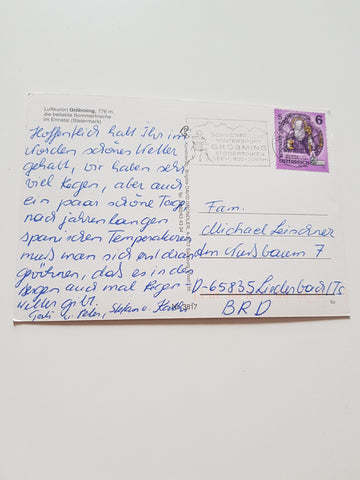 Luftkurort Gröbming, 776 m,
die beliebte Sommerfrische
im Ennstal (Steiermark)
Hoffentlich habt Ihr im
Norden schönes Wetter
gehabt, wir haben sehr
viel Regen, aber auch
ein paar schöne Tage,
nach jahrelangen
spanischen Temperaturen
muß man sich erst dran
gewöhnen, daß es in den
Bergen auch mal Regen-
wetter gibt.
Gerti u. Peter, Stefan u.
WINTERSPORT
GRÖBMING
STODERZINKEN
6
Fam.
Michael Leischner
Am Nußbaum 7
D-65835 Liederbach/Ts
BRD